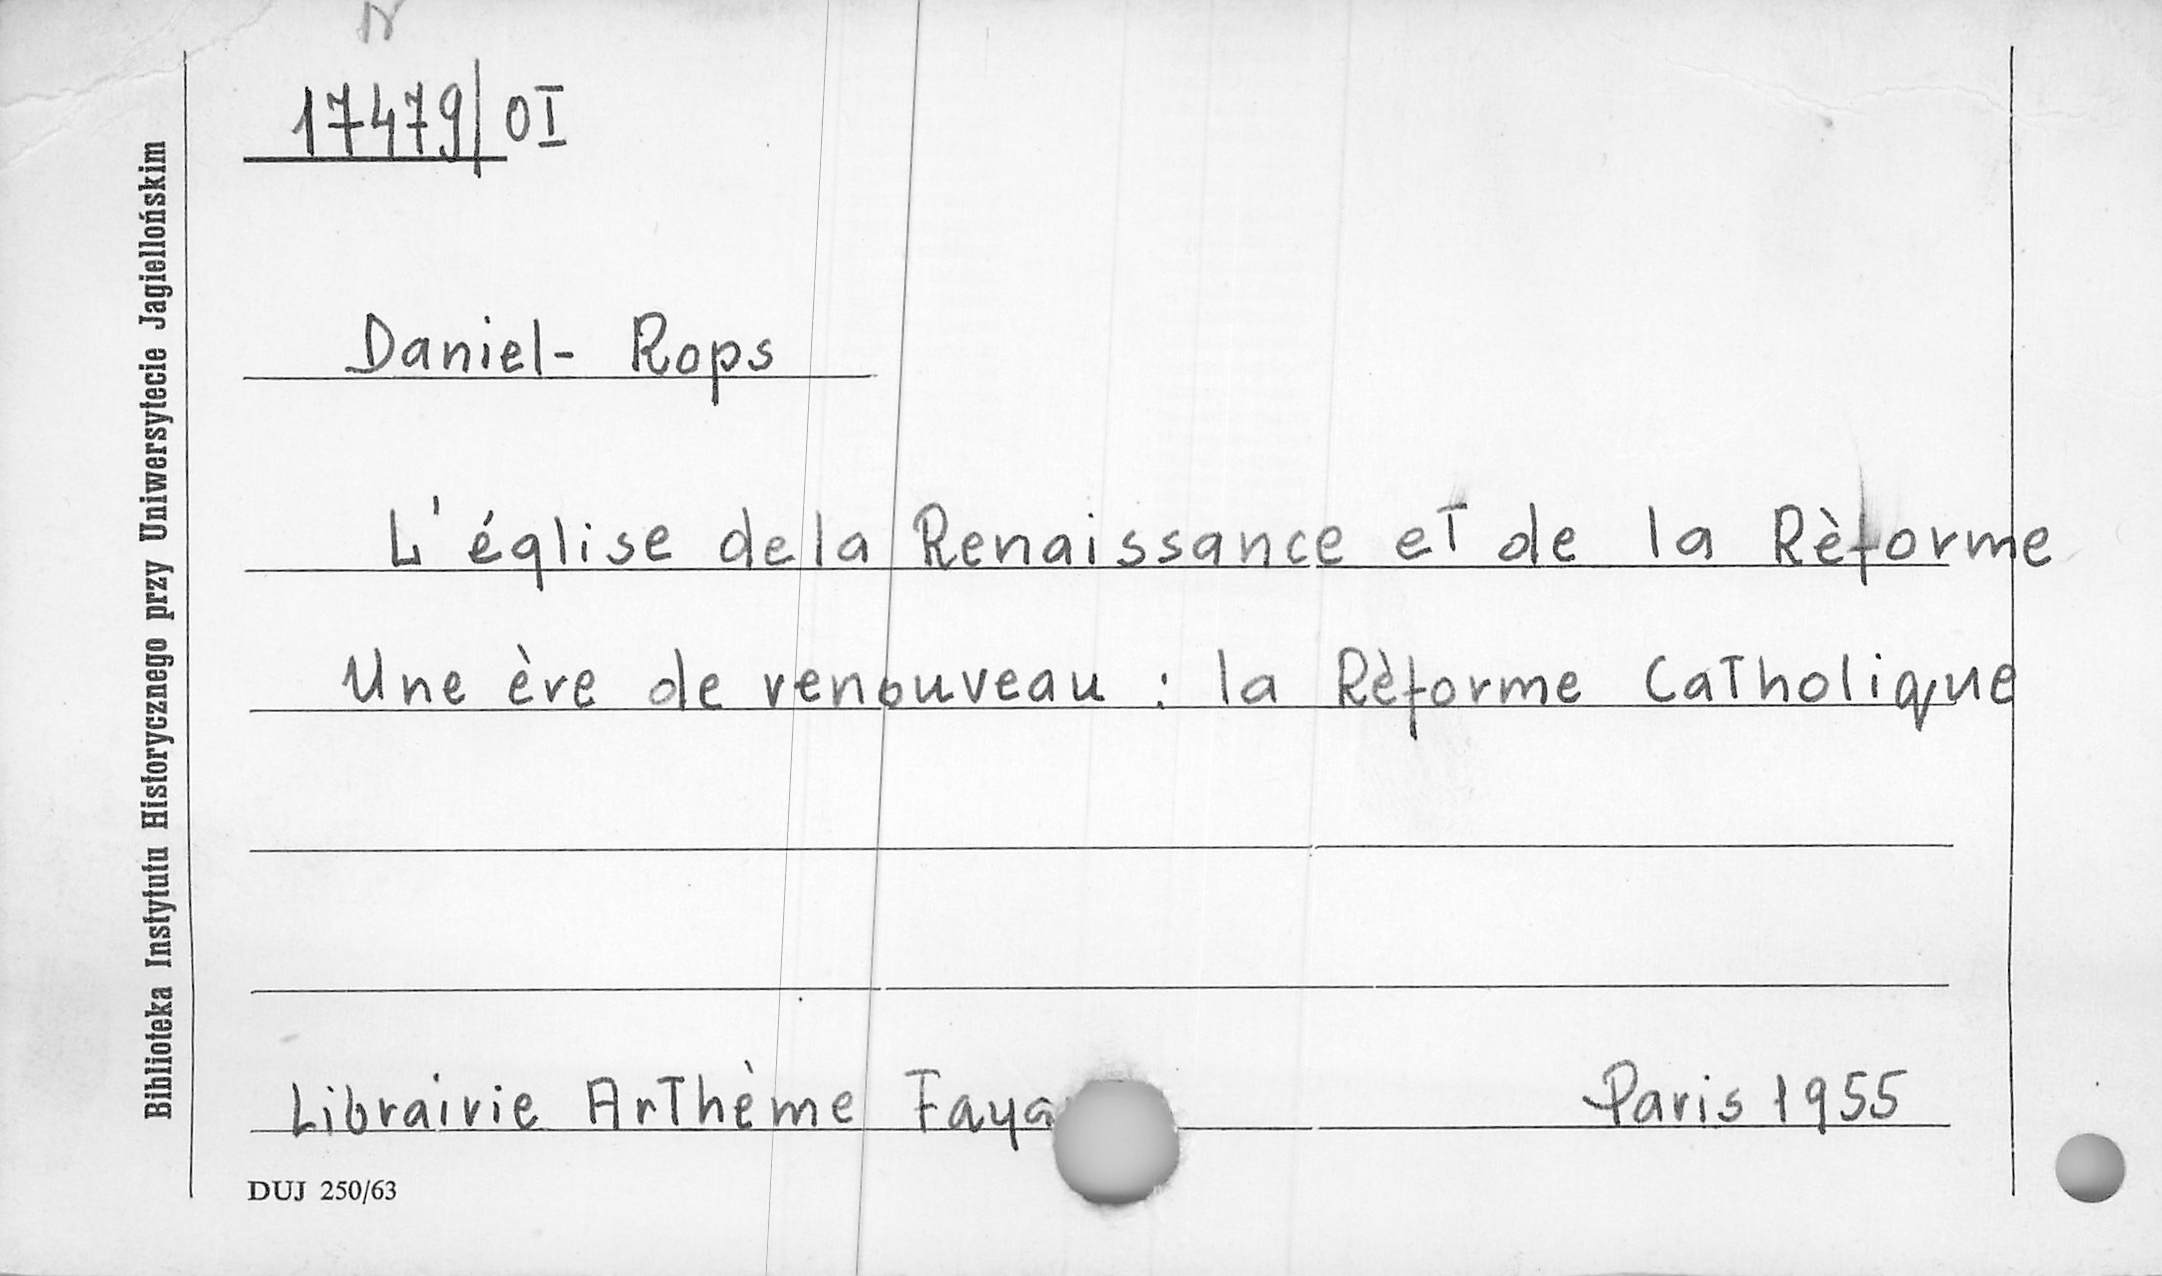 17479/OI
Daniel- Rops
L'église de la Renaissance et de la Rèforme
Une ère de renouveau : la Rèforme Catholique
Librairie Arthème Faya
Paris 1955
DUJ 250/63
Biblioteka Instytutu Historycznego przy Uniwersytecie Jagiellońskim